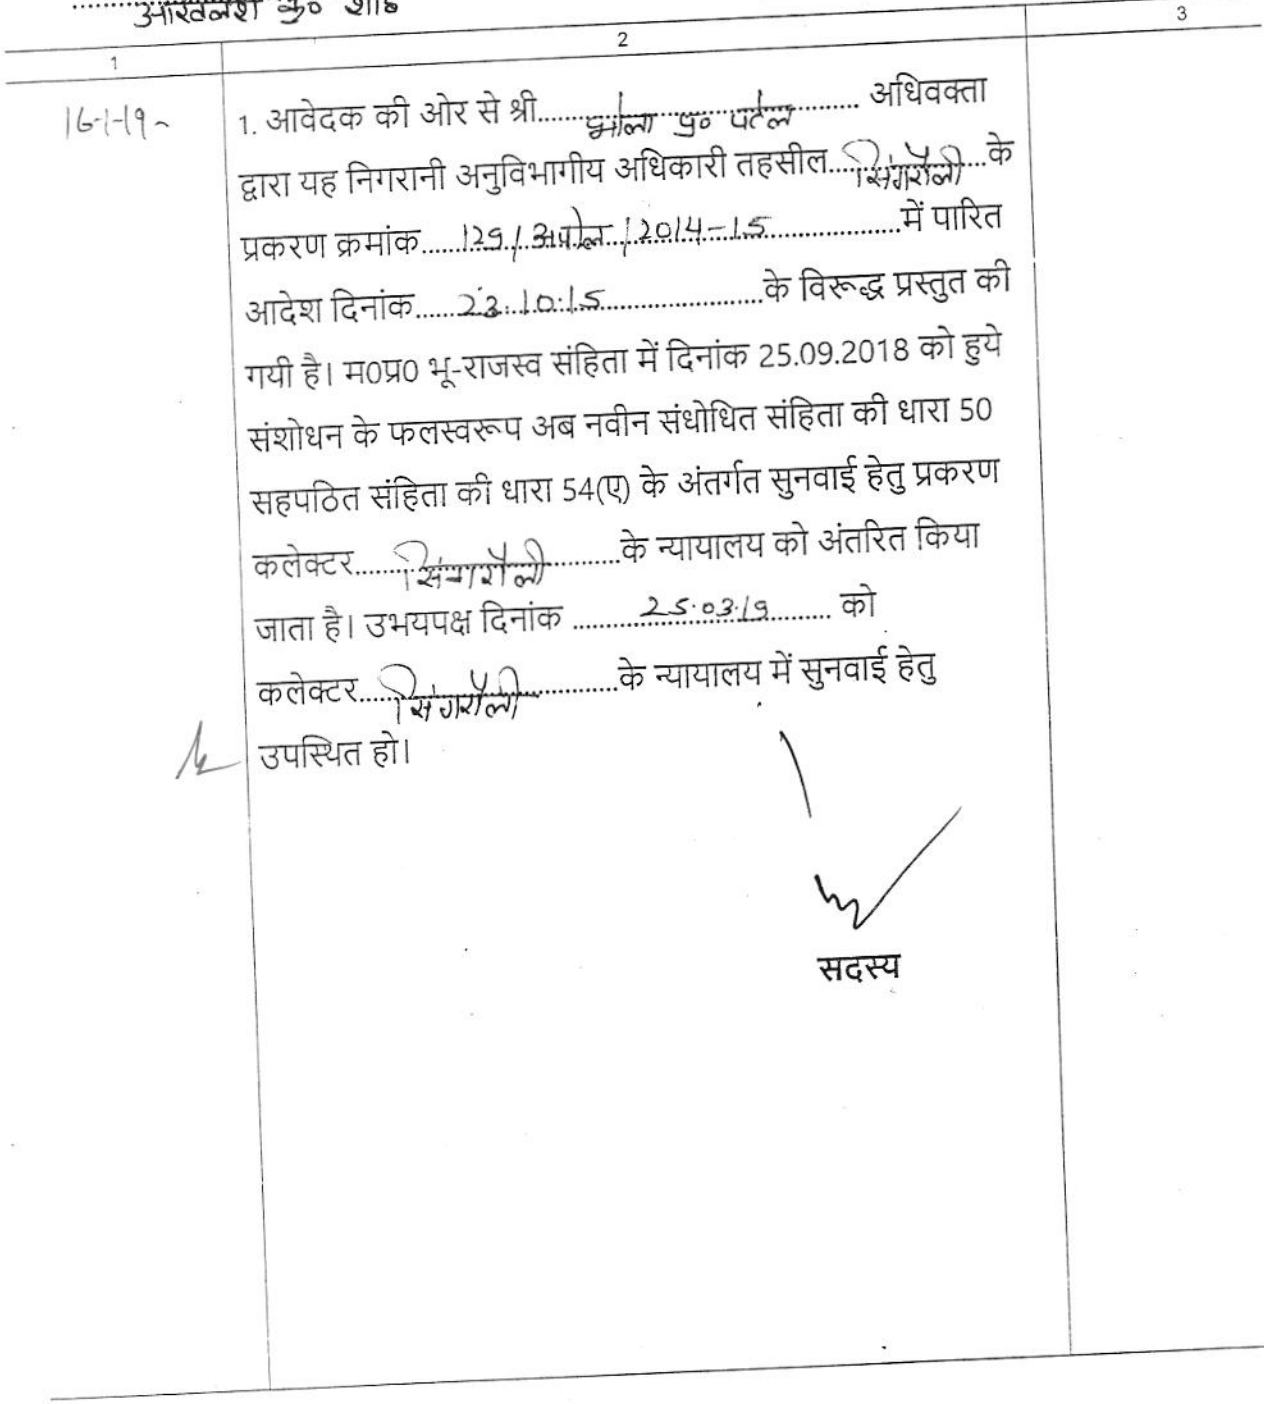 अखिलेश कु० शाह
1 2 3
16-1-19
1. आवेदक की ओर से श्री.....भोला प्र० पटेल..... अधिवक्ता
द्वारा यह निगरानी अनुविभागीय अधिकारी तहसील.....सिंगरौली.....के
प्रकरण क्रमांक.....129/अपील/2014-15.....में पारित
आदेश दिनांक.....23.10.15.....के विरूद्ध प्रस्तुत की
गयी है। म0प्र0 भू-राजस्व संहिता में दिनांक 25.09.2018 को हुये
संशोधन के फलस्वरूप अब नवीन संधोधित संहिता की धारा 50
सहपठित संहिता की धारा 54(ए) के अंतर्गत सुनवाई हेतु प्रकरण
कलेक्टर.....सिंगरौली.....के न्यायालय को अंतरित किया
जाता है। उभयपक्ष दिनांक .....25.03.19..... को
कलेक्टर.....सिंगरौली.....के न्यायालय में सुनवाई हेतु
उपस्थित हो।
सदस्य